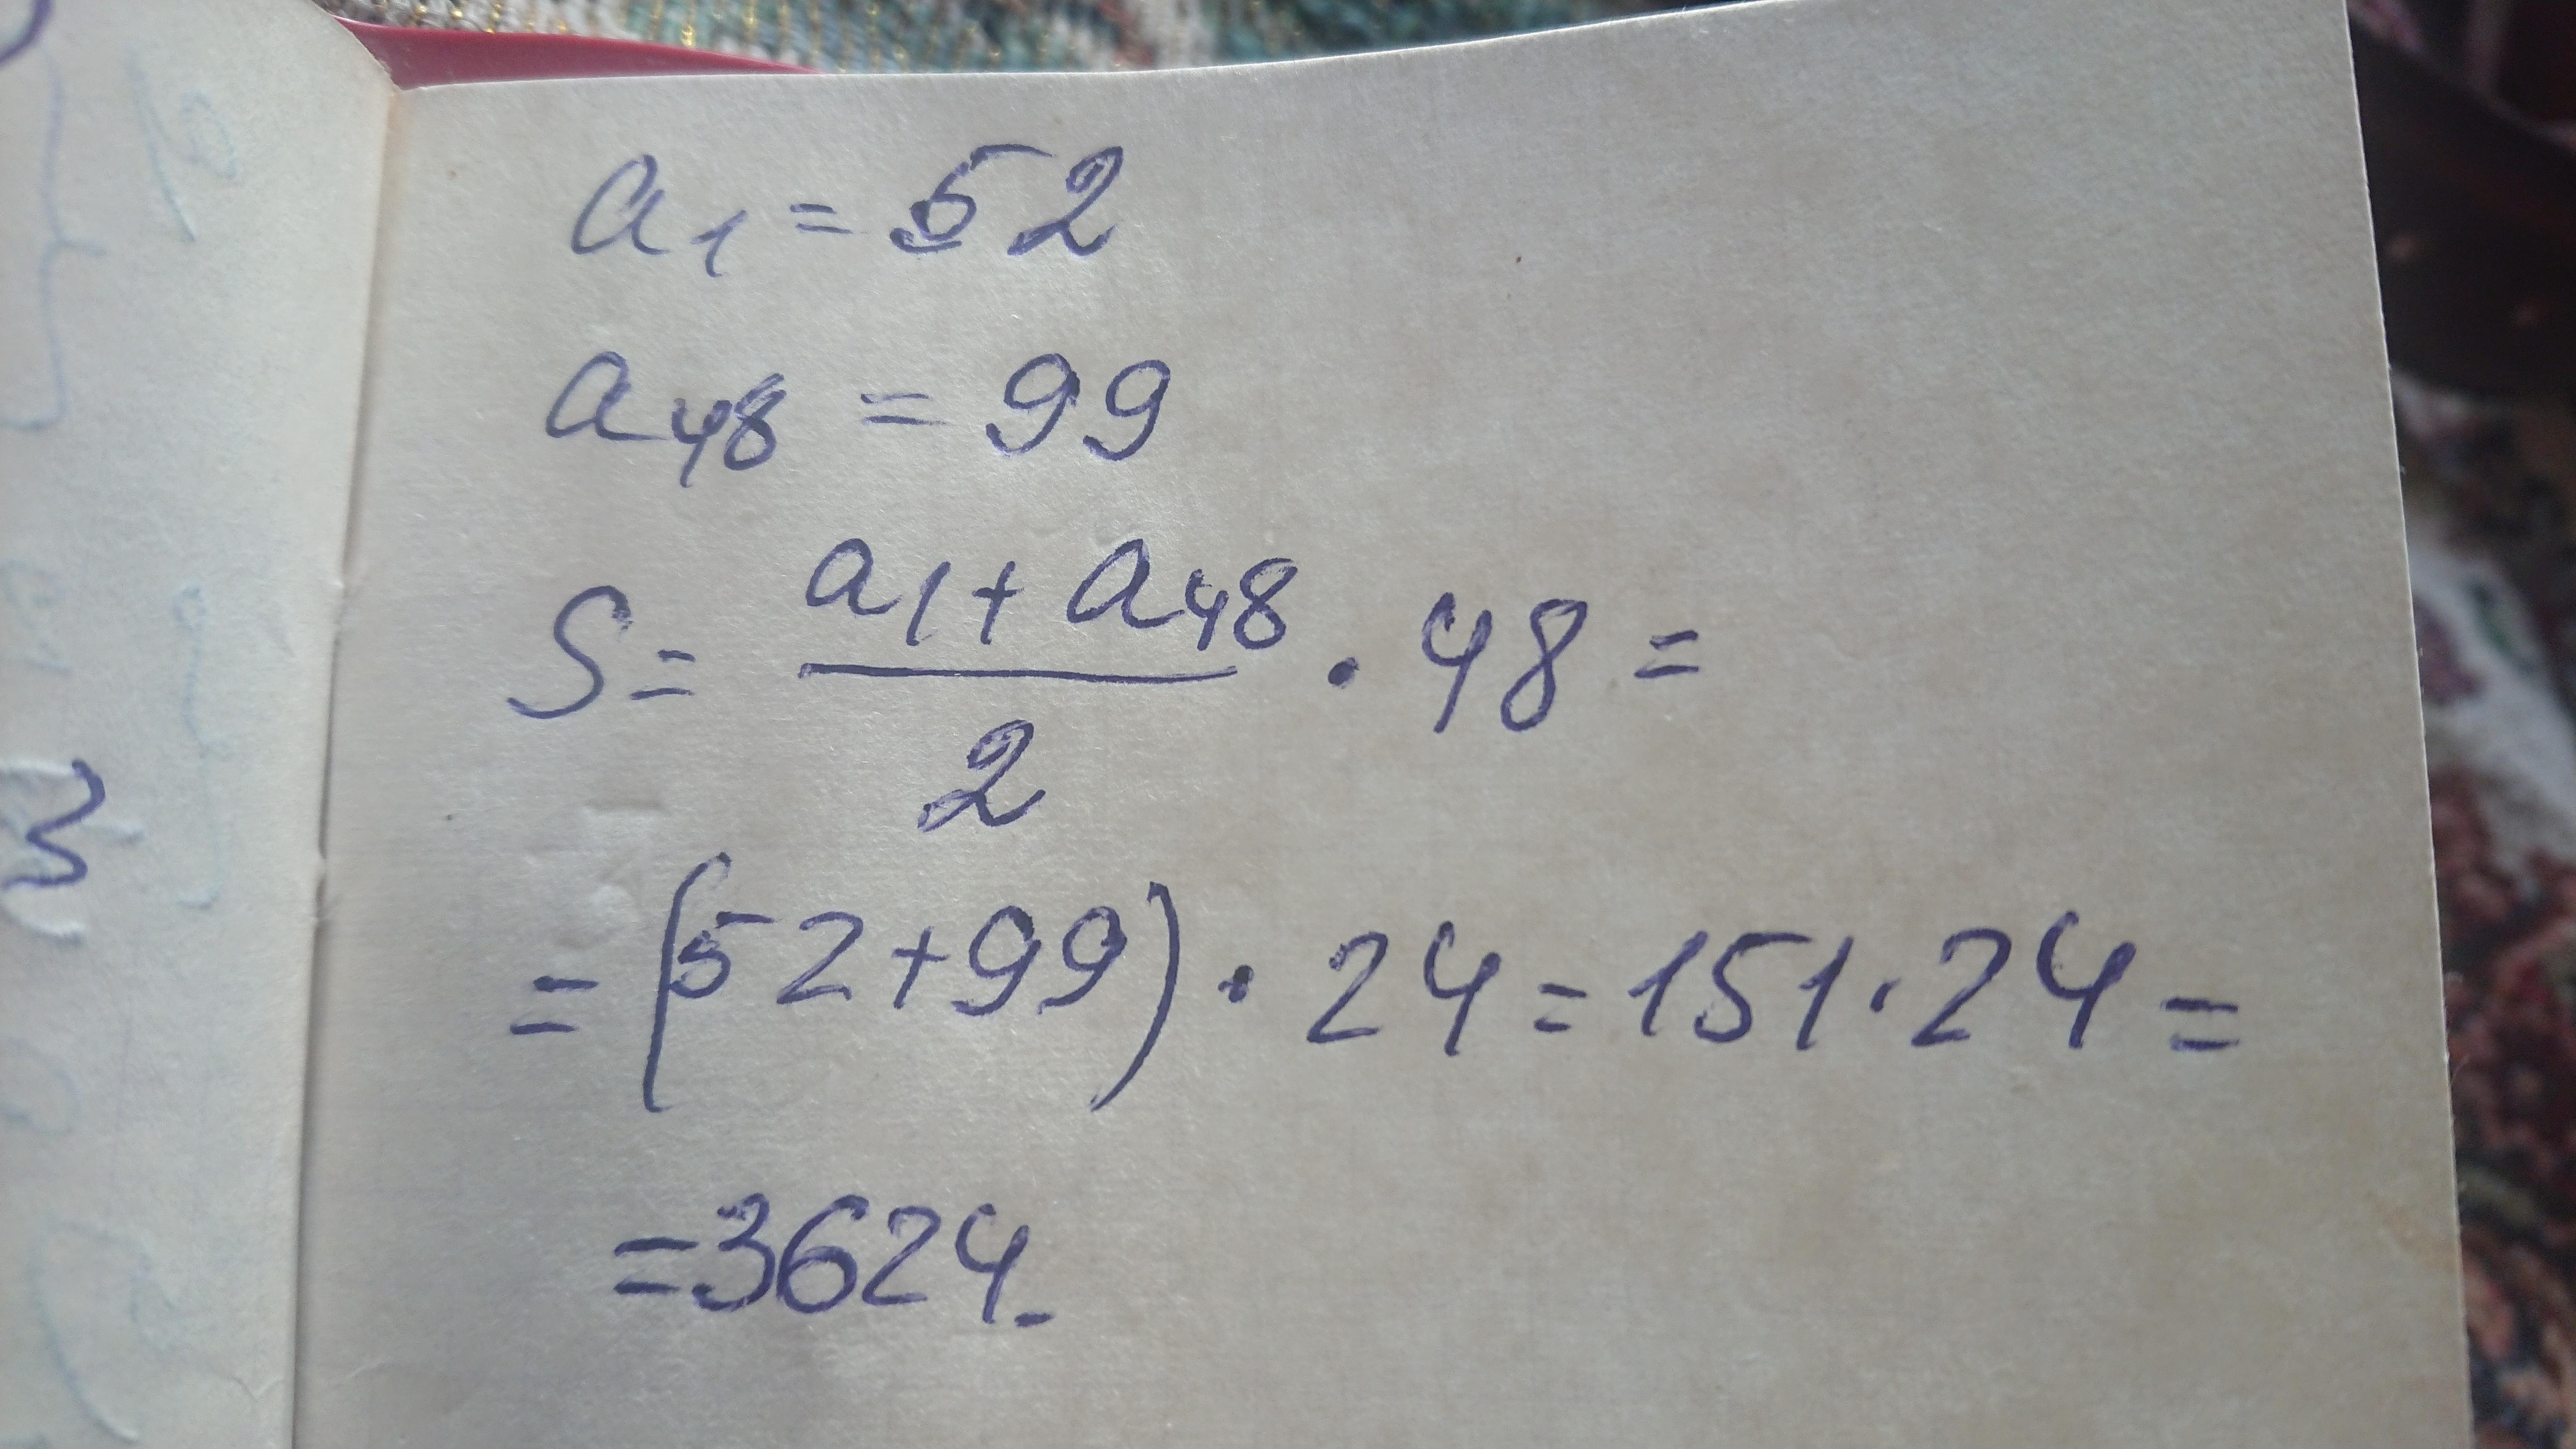 a₁ = 52
a₄₈ = 99
S = (a₁ + a₄₈)/2 · 48 =
= (52+99) · 24 = 151 · 24 =
= 3624.
3